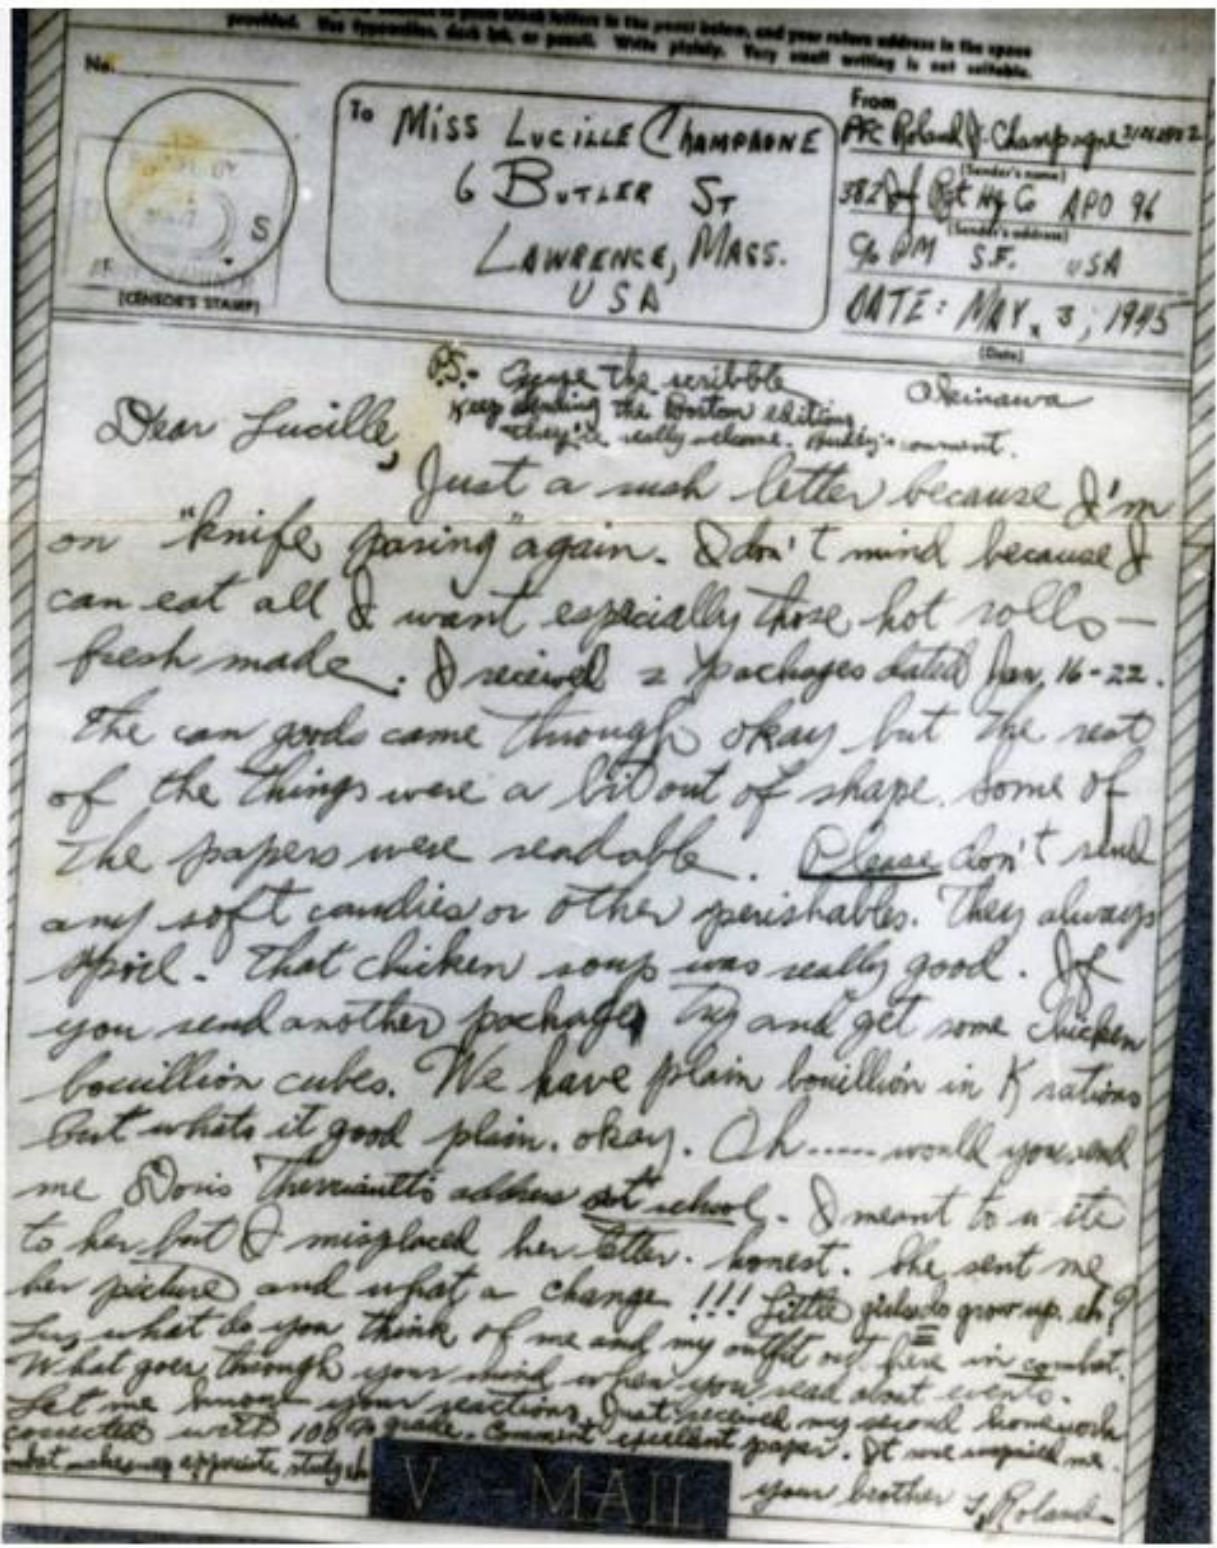 provided. Use typewriter, dark ink, or pencil. Write plainly. Very small writing is not suitable.
No.
(CENSOR'S STAMP)
S
To Miss Lucille Champagne
6 Butler St
Lawrence, Mass.
USA
From
Pfc Roland J. Champagne
(Sender's name)
382 Inf Rgt Hq Co APO 96
(Sender's address)
c/o PM S.F. USA
DATE: MAY. 3, 1945
(Date)
Okinawa
P.S. - the scribble
Keep sending the Boston editions
They're really welcome. Buddy's comment.
Dear Lucille,
Just a rush letter because I'm
on "knife paring" again. I don't mind because I
can eat all I want especially those hot rolls—
fresh made. I received 2 packages dated Jan. 16-22.
The can goods came through okay but the rest
of the things were a bit out of shape. Some of
the papers were readable. Please don't send
any soft candies or other perishables. They always
spoil. That chicken soup was really good. If
you send another package, try and get some chicken
bouillion cubes. We have plain bouillion in K rations
but whats it good plain. okay. Oh ..... would you send
me Doris address at school. I meant to write
to her but I misplaced her letter. honest. She sent me
her picture and what a change !!! Little girls do grow up. eh?
Lu, what do you think of me and my outfit out here in combat.
What goes through your mind when you read about events.
Let me know your reactions. Just received my second homework
corrected with 100% grade. Comment excellent paper. It me.
what study eh
your brother
Roland
V - MAIL